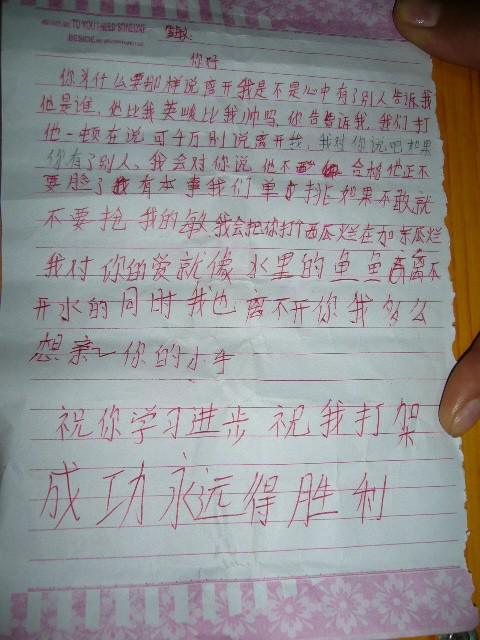 TO YOU I NEED SOMEONE
敏
你好
你为什么要那样说离开我是不是心中有了别人告诉我
他是谁,他比我英峻比我帅吗,你告告诉我,我们打
他一顿在说可千万别说离开我,我对你说吧如果
你有了别人、我会对你说他不 合格他正不
要脸了我有本事我们单打挑如果不敢就
不要抢我的敏我会把你打个西瓜烂在加东瓜烂
我对你的爱就像水里的鱼鱼离不
开水的同时我也离不开你我多么
想亲一你的小手
祝你学习进步祝我打架
成功永远得胜利